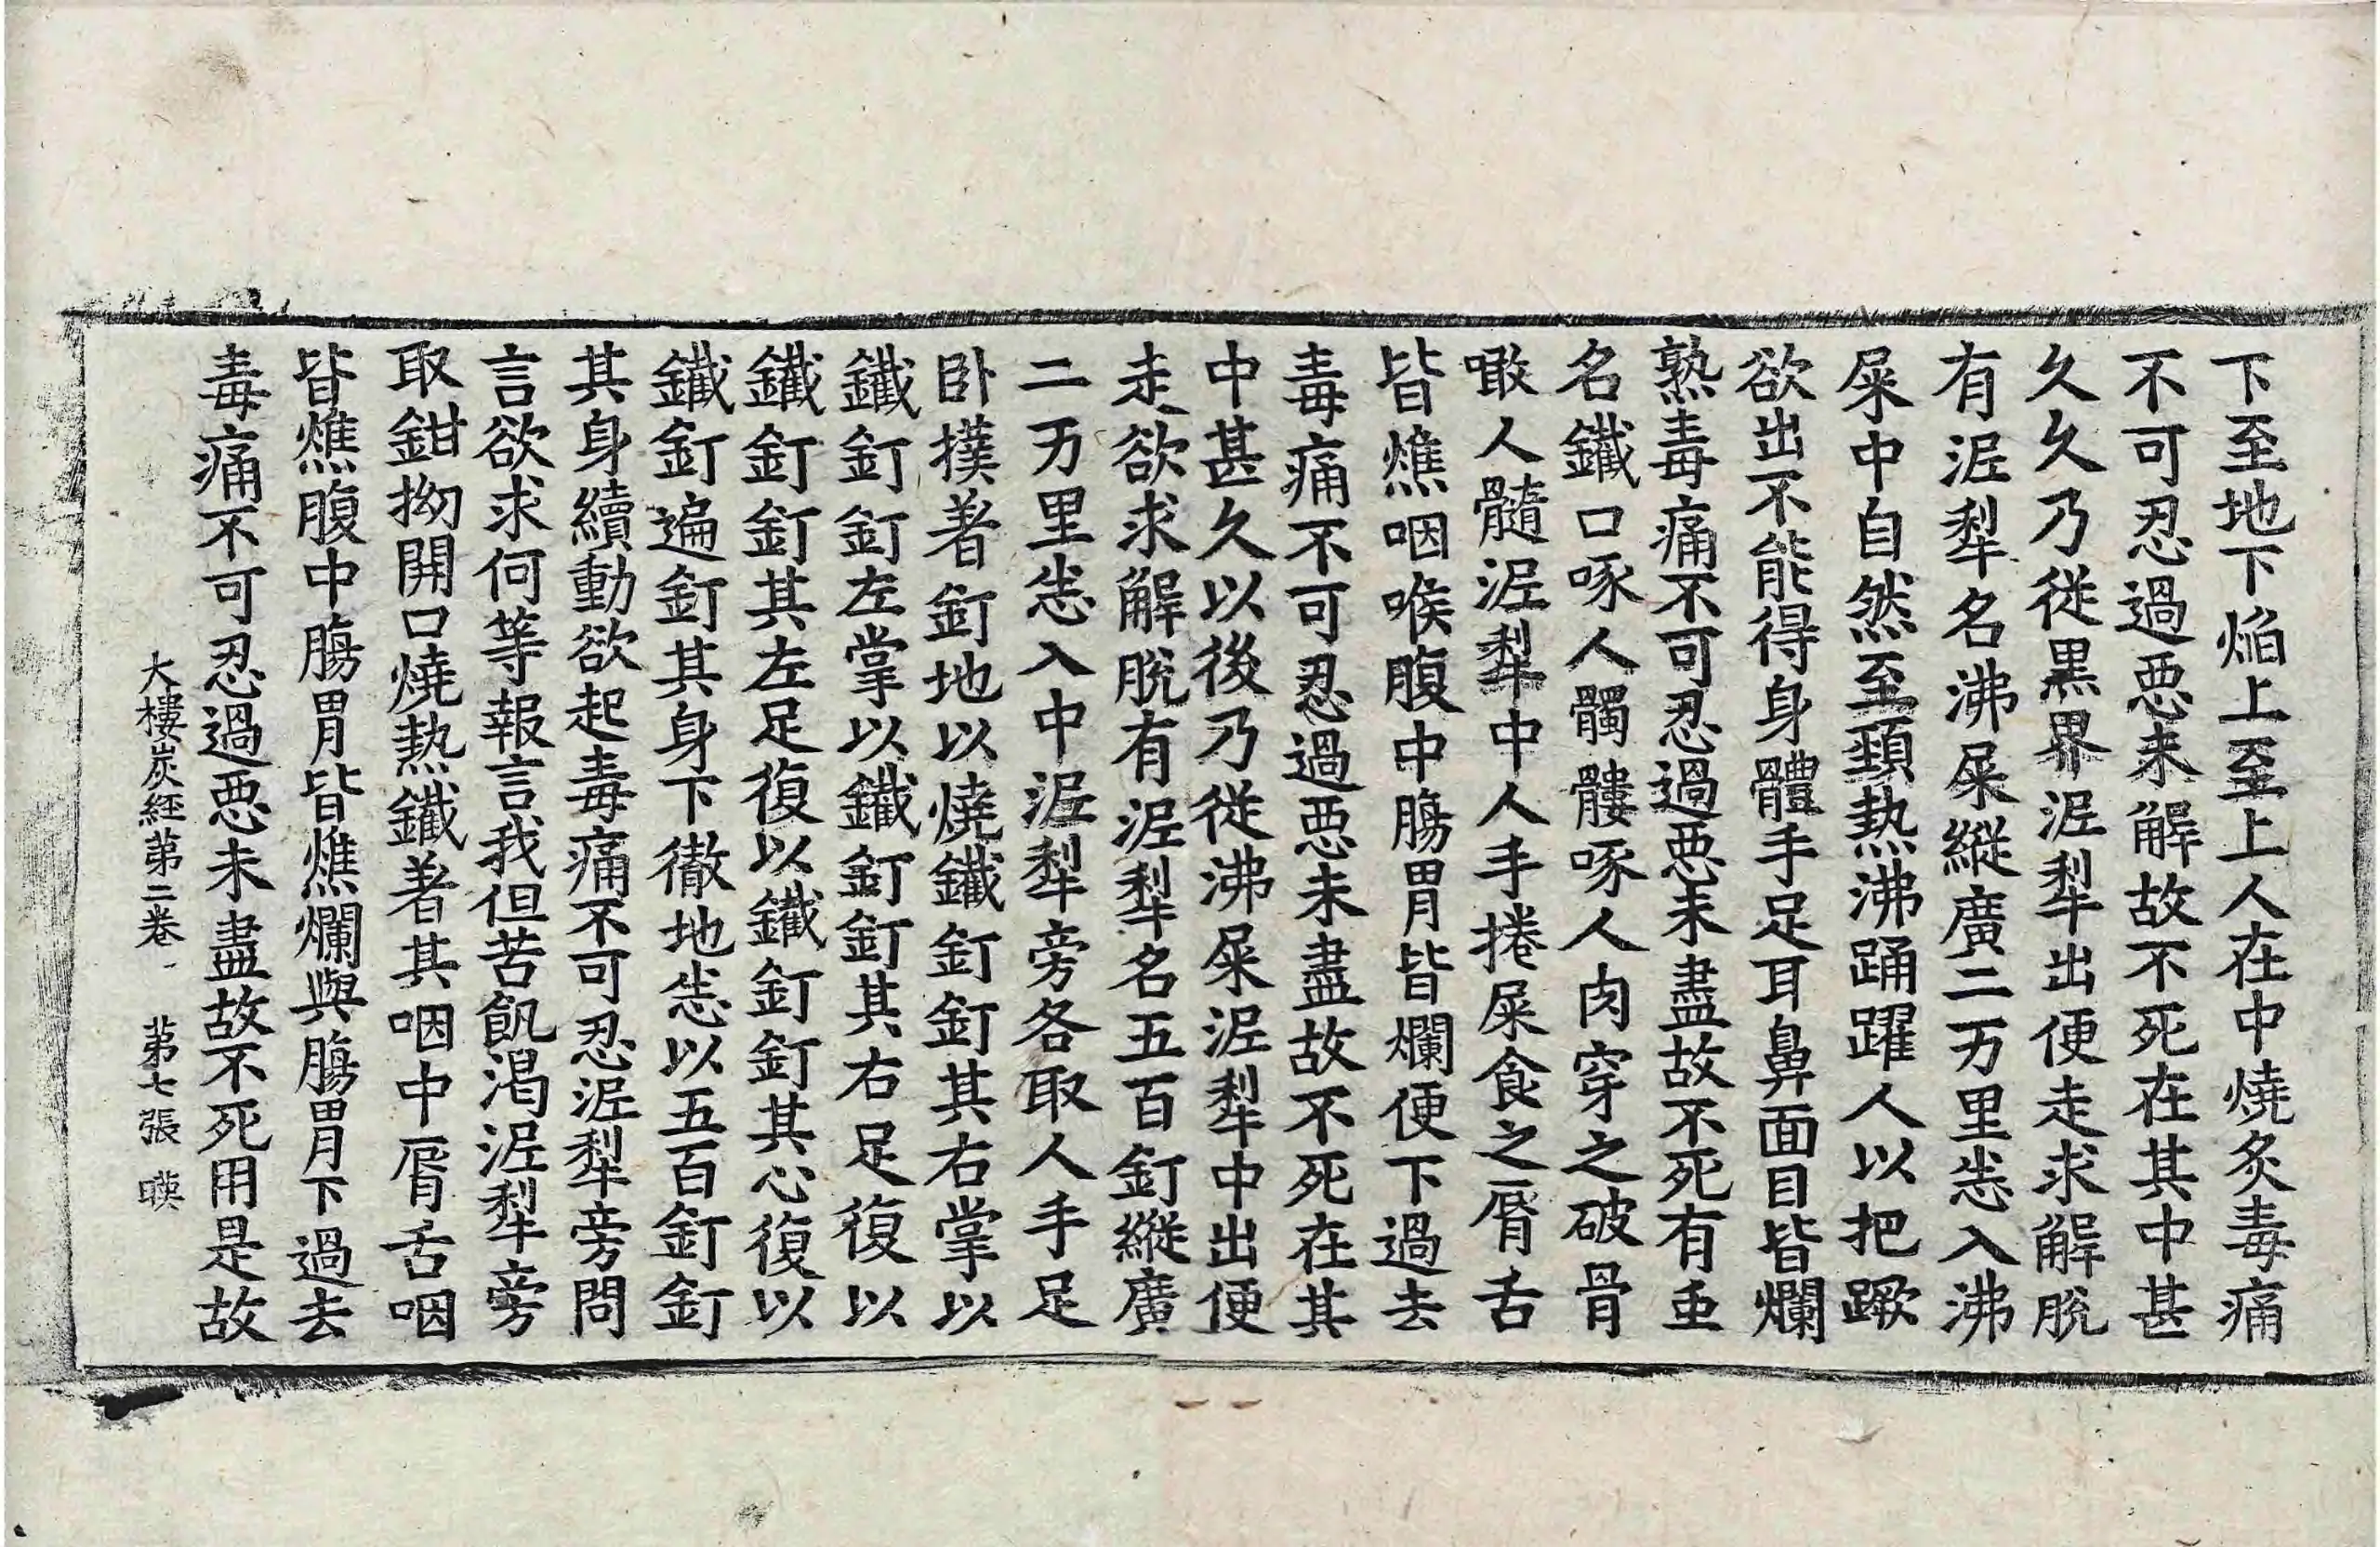 下至地下焰上至上人在中燒炙毒痛
不可忍過惡未解故不死在其中甚
久久乃從黑界泥犁出便走求解脫
有泥犁名沸屎縱廣二万里恙入沸
屎中自然至頸熱沸踊躍人以把蹶
欲出不能得身體手足耳鼻面目皆爛
熟毒痛不可忍過惡未盡故不死有䖝
名鐵口啄人髑髏啄人肉穿之破骨
噉人髓泥犁中人手捲屎食之脣舌
皆燋咽喉腹中膓胃皆爛便下過去
毒痛不可忍過惡未盡故不死在其
中甚久以後乃從沸屎泥犁中出便
走欲求解脫有泥犁名五百釘縱廣
二万里恙入中泥犁旁各取人手足
卧撲著釘地以燒鐵釘釘其右掌以
鐵釘釘左掌以鐵釘釘其右足復以
鐵釘釘其左足復以鐵釘釘其心復以
鐵釘遍釘其身下徹地恙以五百釘釘
其身續動欲起毒痛不可忍泥犁旁問
言欲求何等報言我但苦飢渴泥犁旁
取鉗拗開口燒熱鐵著其咽中脣舌咽
皆燋腹中膓胃皆燋爛與膓胃下過去
毒痛不可忍過惡未盡故不死用是故
大樓炭經第二卷 第七張